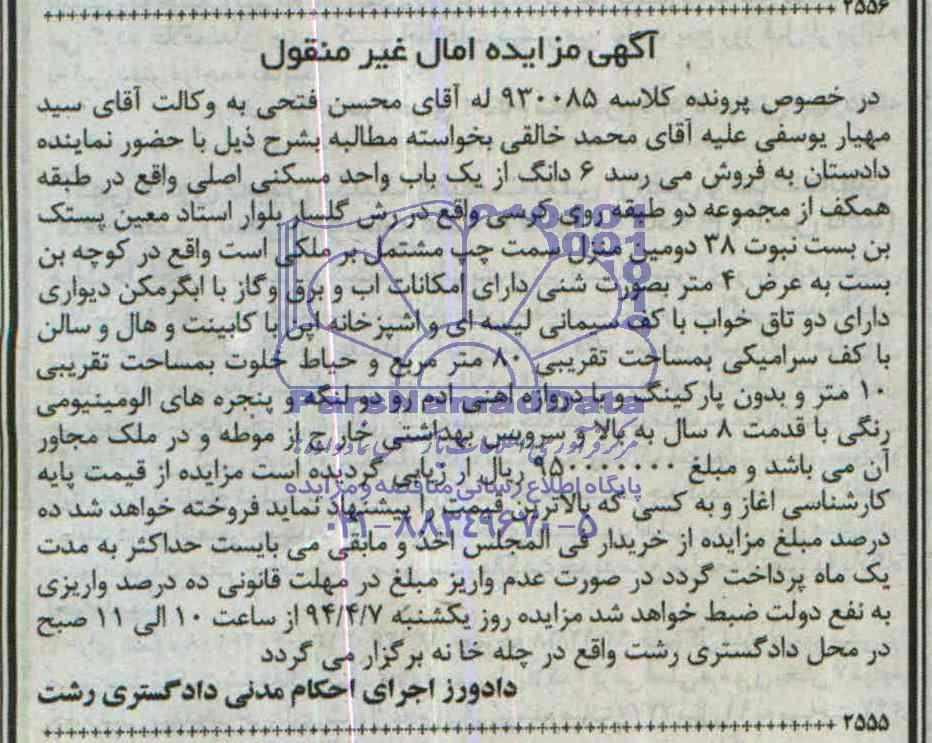 ۲۵۵۶
آگهی مزایده امال غیر منقول
در خصوص پرونده کلاسه ۹۳۰۰۸۵ له آقای محسن فتحی به وکالت آقای سید
مهیار یوسفی علیه آقای محمد خالقی بخواسته مطالبه بشرح ذیل با حضور نماینده
دادستان به فروش می رسد ۶ دانگ از یک باب واحد مسکنی اصلی واقع در طبقه
همکف از مجموعه دو طبقه روی کرسی واقع در رش گلسار بلوار استاد معین پستک
بن بست نبوت ۳۸ دومین منزل سمت چپ مشتمل بر ملکی است واقع در کوچه بن
بست به عرض ۴ متر بصورت شنی دارای امکانات اب و برق وگاز با ابگرمکن دیواری
دارای دو تاق خواب با کف سیمانی لیسه ای و اشپزخانه اپن با کابینت و هال و سالن
با کف سرامیکی بمساحت تقریبی ۸۰ متر مربع و حیاط خلوت بمساحت تقریبی
۱۰ متر و بدون پارکینگ و با دروازه اهنی ادم رو دو لنگه و پنجره های الومینیومی
رنگی با قدمت ۸ سال به بالا و سرویس بهداشتی خارج از موطه و در ملک مجاور
آن می باشد و مبلغ ۹۵۰۰۰۰۰۰۰ ریال ار زیابی گردیده است مزایده از قیمت پایه
کارشناسی اغاز و به کسی که بالاترین قیمت را پیشنهاد نماید فروخته خواهد شد ده
درصد مبلغ مزایده از خریدار فی المجلس اخذ و مابقی می بایست حداکثر به مدت
یک ماه پرداخت گردد در صورت عدم واریز مبلغ در مهلت قانونی ده درصد واریزی
به نفع دولت ضبط خواهد شد مزایده روز یکشنبه ۹۴/۴/۷ از ساعت ۱۰ الی ۱۱ صبح
در محل دادگستری رشت واقع در چله خا نه برگزار می گردد
دادورز اجرای احکام مدنی دادگستری رشت
۲۵۵۵
ParsNamadData
پایگاه اطلاع رسانی مناقصه و مزایده
۰۲۱-۸۸۳۴۹۶۷۰-۵